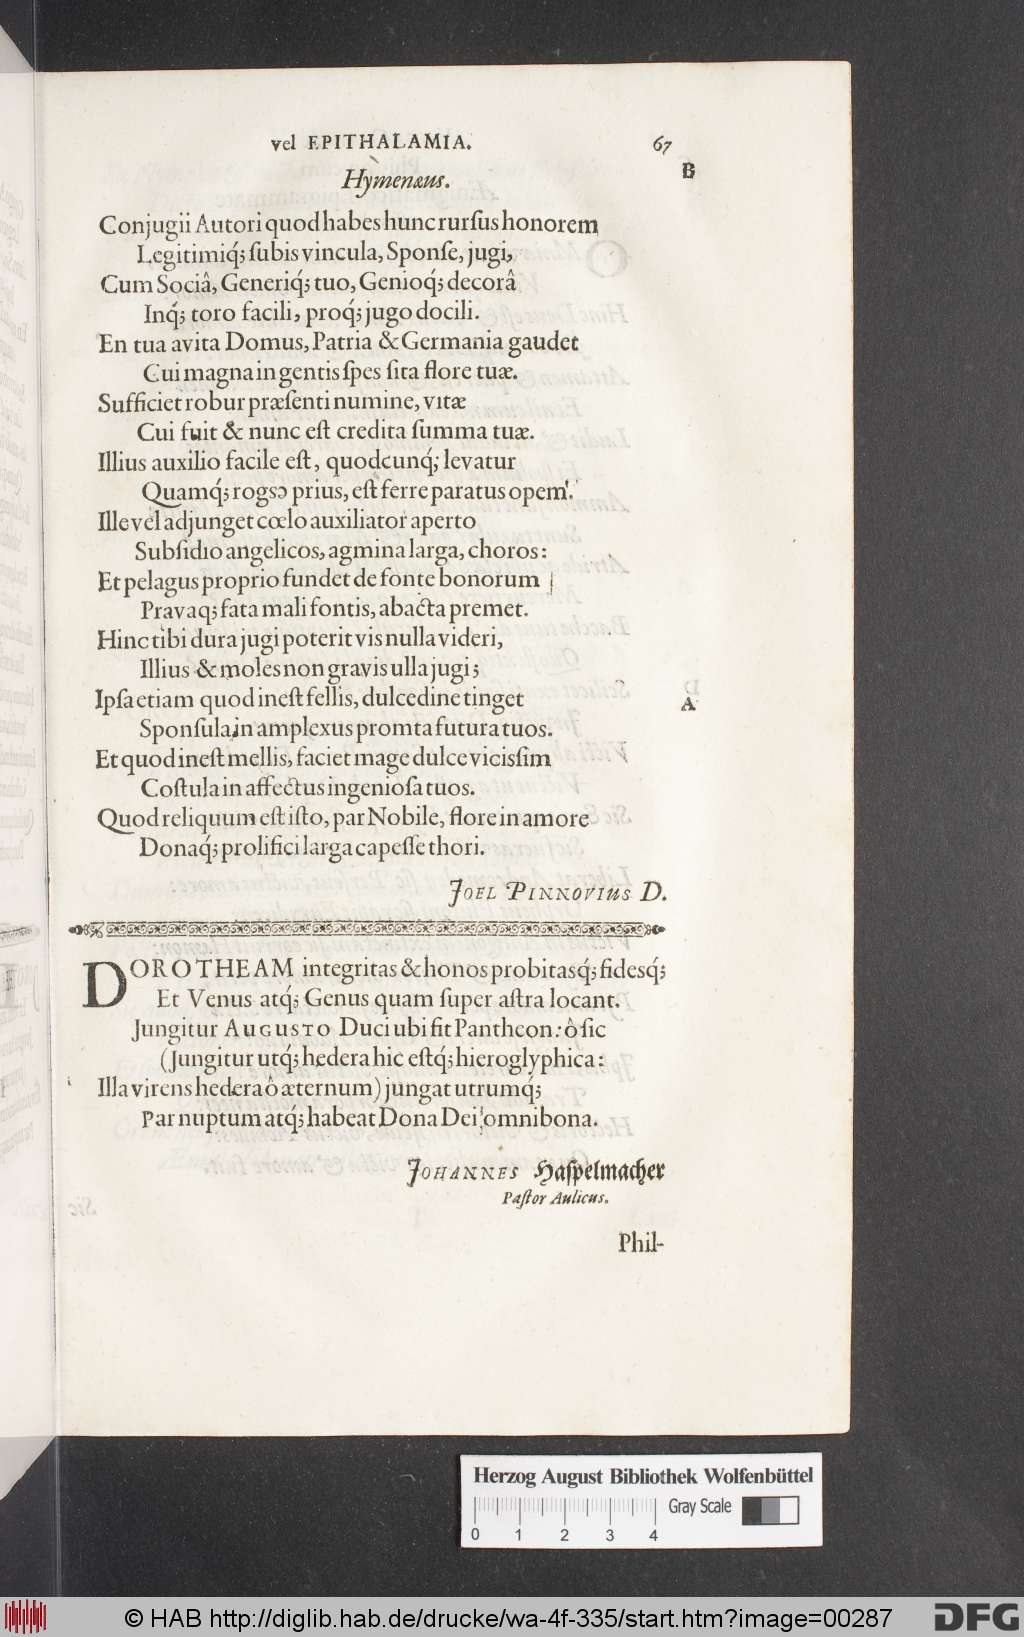 vel EPITHALAMIA. 67
B
Hymenæus.
Conjugii Autori quod habes hunc rursus honorem
Legitimiq́; subis vincula, Sponse, jugi,
Cum Sociâ, Generiq́; tuo, Genioq́; decorâ
Inq́; toro facili, proq́; jugo docili.
En tua avita Domus, Patria & Germania gaudet
Cui magna in gentis spes sita flore tuæ.
Sufficiet robur præsenti numine, vitæ
Cui fuit & nunc est credita summa tuæ.
Illius auxilio facile est, quodcunq́; levatur
Quamq́; rogsɔ prius, est ferre paratus opem.
Ille vel adjunget cœlo auxiliator aperto
Subsidio angelicos, agmina larga, choros:
Et pelagus proprio fundet de fonte bonorum
Pravaq; fata mali fontis, abacta premet.
Hinc tibi dura jugi poterit vis nulla videri,
Illius & moles non gravis ulla jugi;
Ipsa etiam quod inest fellis, dulcedine tinget
A
Sponsula, in amplexus promta futura tuos.
Et quod inest mellis, faciet mage dulce vicissim
Costula in affectus ingeniosa tuos.
Quod reliquum est isto, par Nobile, flore in amore
Donaq́; prolifici larga capesse thori.
JOEL PINNOVIUS D.
DOROTHEAM integritas & honos probitasq́; fidesq́;
Et Venus atq́; Genus quam super astra locant.
Jungitur AUGUSTO Duci ubi fit Pantheon: ô sic
(Jungitur utq́; hedera hic estq́; hieroglyphica:
Illa virens hedera ô æternum) jungat utrumq́;
Par nuptum atq́; habeat Dona Dei omnibona.
JOHANNES Haspelmacher
Pastor Aulicus.
Phil-
Herzog August Bibliothek Wolfenbüttel
Gray Scale
0 1 2 3 4
© HAB http://diglib.hab.de/drucke/wa-4f-335/start.htm?image=00287
DFG